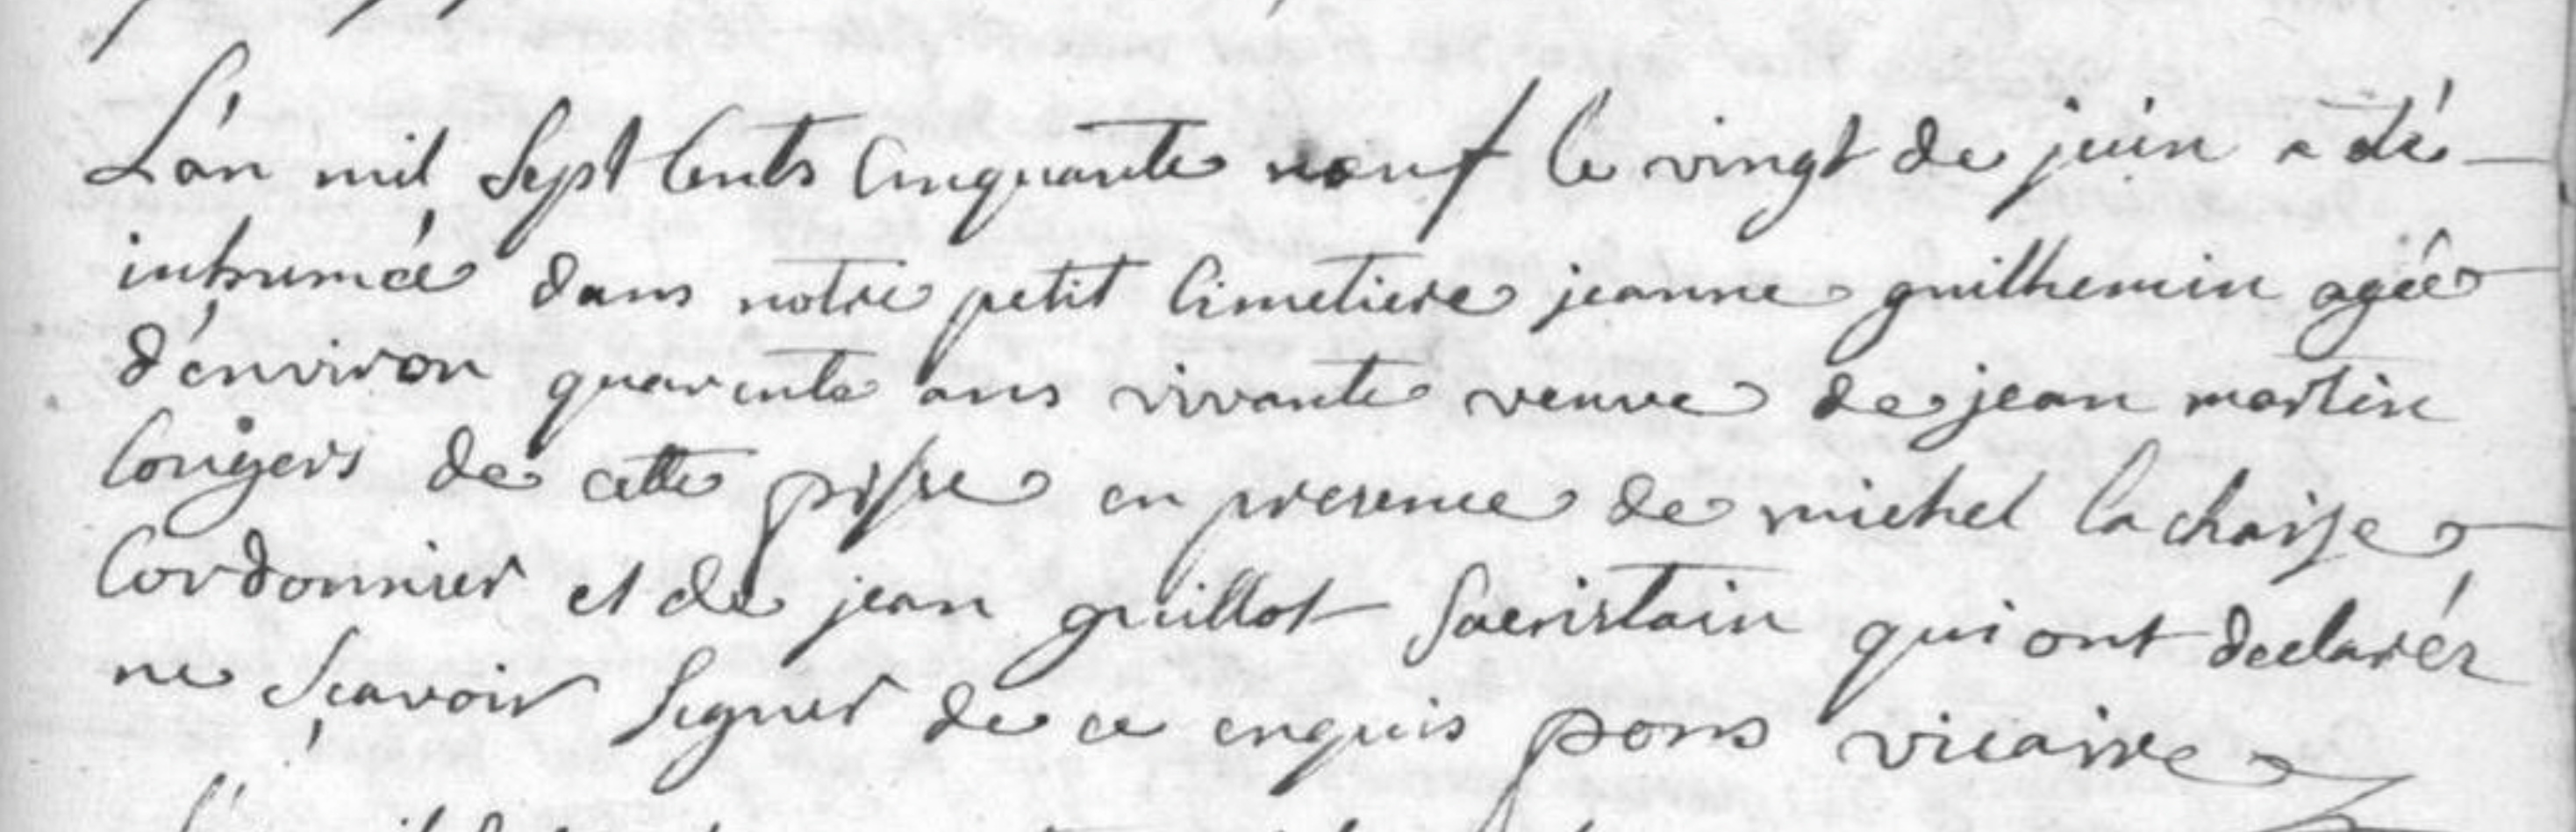 L'an mil sept Cents Cinquante neuf le vingt de juin a été
inhumée dans notre petit Cimetiere jeanne guilhemin agée
d'environ quarente ans vivante veuve de jean martin
Congers de cette prsse en presence de michel la chaise
Cordonnier et de jean guillot sacristain qui ont declarér
ne sçavoir signer de ce enquis pons vicaire